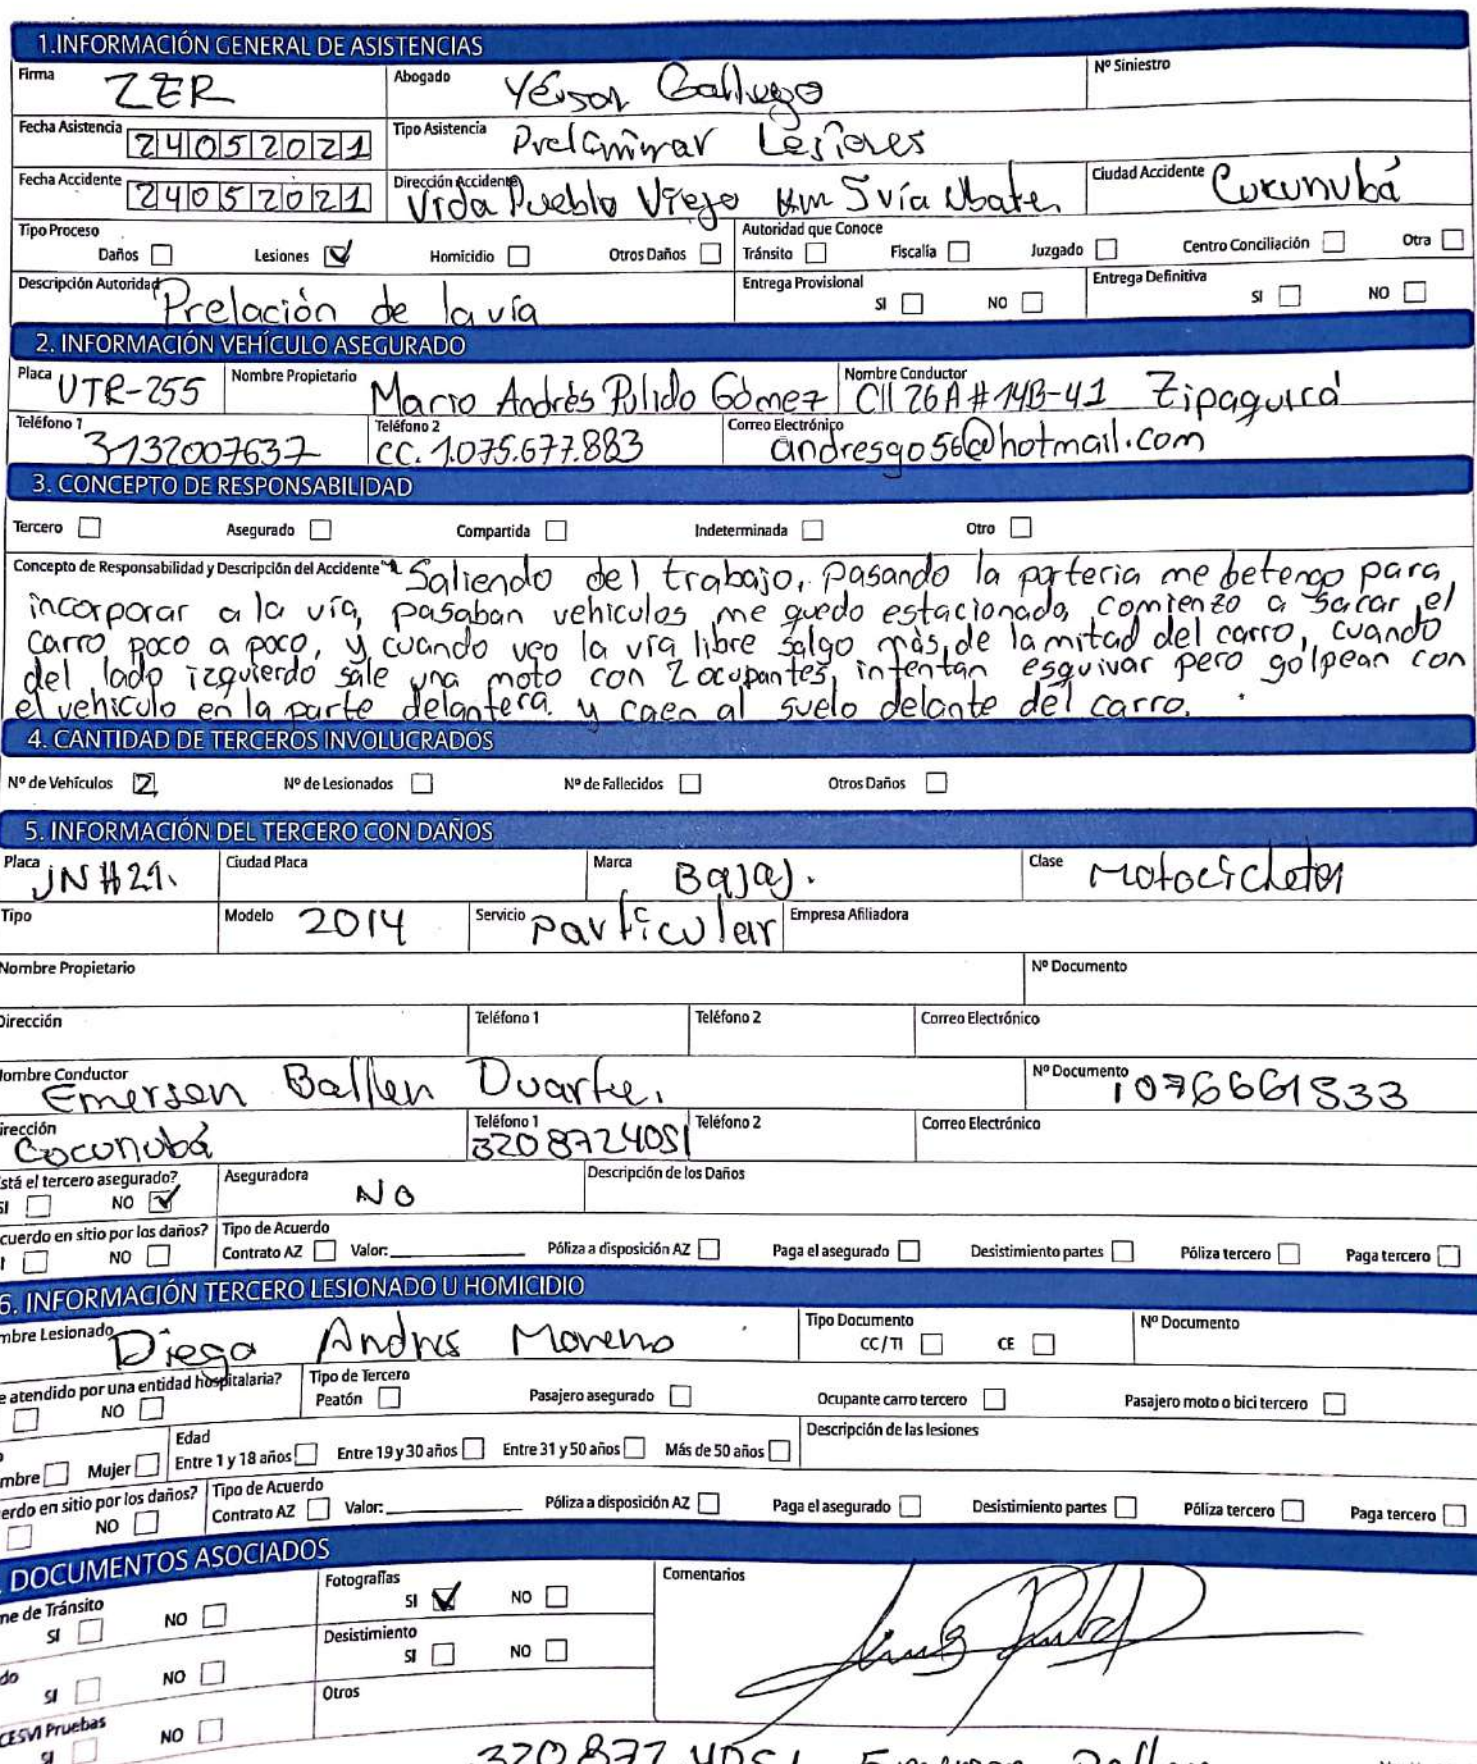 1.INFORMACIÓN GENERAL DE ASISTENCIAS
Firma ZER Abogado Yéison Gallego Nº Siniestro
Fecha Asistencia 24052021 Tipo Asistencia Preliminar Lesiones
Fecha Accidente 24052021 Dirección Accidente Vrda Pueblo Viejo Km 5 vía Ubate, Ciudad Accidente Cucunubá
Tipo Proceso Autoridad que Conoce
Daños Lesiones Homicidio Otros Daños Tránsito Fiscalía Juzgado Centro Conciliación Otra
Descripción Autoridad Prelación de la vía Entrega Provisional SI NO Entrega Definitiva SI NO
2. INFORMACIÓN VEHÍCULO ASEGURADO
Placa UTR-255 Nombre Propietario Mario Andrés Pulido Gómez Nombre Conductor Cll 26A # 14B-41 Zipaquirá
Teléfono 1 3132007637 Teléfono 2 CC. 1.075.677.883 Correo Electrónico andresgo56@hotmail.com
3. CONCEPTO DE RESPONSABILIDAD
Tercero Asegurado Compartida Indeterminada Otro
Concepto de Responsabilidad y Descripción del Accidente Saliendo del trabajo, pasando la portería me detengo para,
incorporar a la vía, pasaban vehiculos me quedo estacionado, comienzo a sacar el
carro poco a poco, y cuando veo la vía libre salgo más de la mitad del carro, cuando
del lado izquierdo sale una moto con 2 ocupantes, intentan esquivar pero golpean con
el vehiculo en la parte delantera. y caen al suelo delante del carro.
4. CANTIDAD DE TERCEROS INVOLUCRADOS
Nº de Vehículos 2 Nº de Lesionados Nº de Fallecidos Otros Daños
5. INFORMACIÓN DEL TERCERO CON DAÑOS
Placa Ciudad Placa Marca Bajaj. Clase Motocicleta
Tipo Modelo 2014 Servicio particular Empresa Afiliadora
Nombre Propietario Nº Documento
Dirección Teléfono 1 Teléfono 2 Correo Electrónico
Nombre Conductor Emerson Ballen Duarte. Nº Documento 1076661533
irección Cocunubá Teléfono 1 3208724051 Teléfono 2 Correo Electrónico
stá el tercero asegurado? Aseguradora NO Descripción de los Daños
SI NO
cuerdo en sitio por los daños? Tipo de Acuerdo
NO Contrato AZ Valor: Póliza a disposición AZ Paga el asegurado Desistimiento partes Póliza tercero Paga tercero
6. INFORMACIÓN TERCERO LESIONADO U HOMICIDIO
mbre Lesionado Diego Andres Moreno Tipo Documento CC/TI CE Nº Documento
e atendido por una entidad hospitalaria? Tipo de Tercero
NO Peatón Pasajero asegurado Ocupante carro tercero Pasajero moto o bici tercero
Edad Descripción de las lesiones
mbre Mujer Entre 1 y 18 años Entre 19 y 30 años Entre 31 y 50 años Más de 50 años
erdo en sitio por los daños? Tipo de Acuerdo
NO Contrato AZ Valor: Póliza a disposición AZ Paga el asegurado Desistimiento partes Póliza tercero Paga tercero
. DOCUMENTOS ASOCIADOS
me de Tránsito SI NO Fotografías SI NO Comentarios
Desistimiento SI NO
do SI NO
Otros
CESVI Pruebas SI NO
3208724051 Emerson Ballen